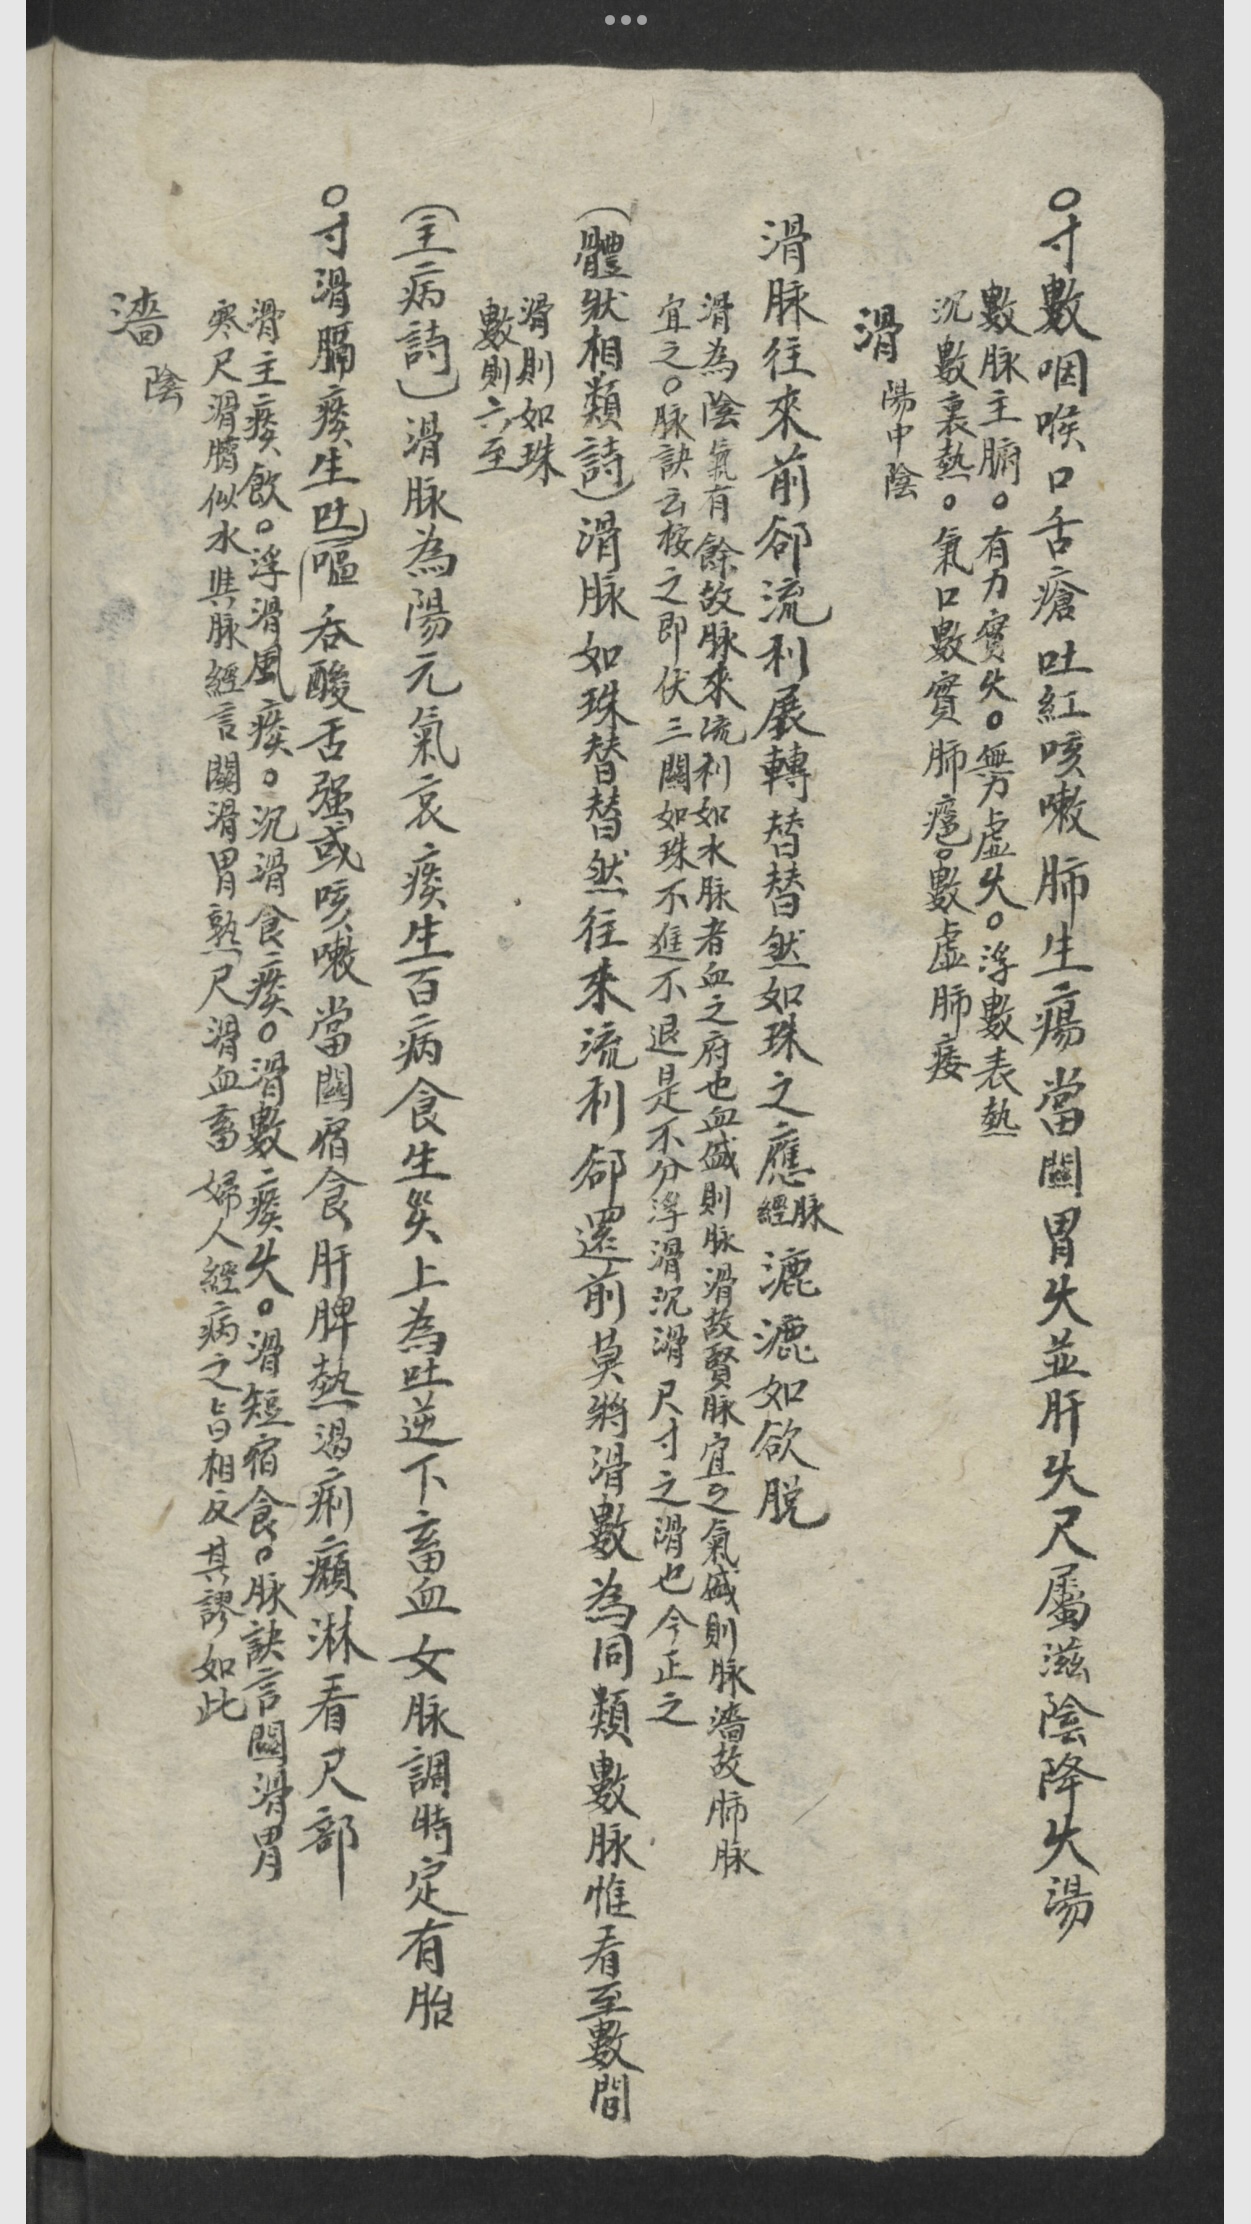 ○寸數咽喉口舌瘡吐紅咳嗽肺生瘍當關胃火並肝火尺屬滋陰降火湯
數脉主腑○有力實火○無力虛火○浮數表熱
沉數裏熱○氣口數實肺癰○數虛肺痿
滑 陽中陰
滑脉往來前郤流利展轉替替然如珠之應脉經漉漉如欲脱
滑為陰氣有餘故脉來流利如水脉者血之府也血盛則脉滑故賢脉宜之氣盛則脉濇故肺脉
宜之○脉訣云按之即伏三關如珠不進不退是不分浮滑沉滑尺寸之滑也今正之
(體狀相類詩)滑脉如珠替替然往來流利郤還前莫將滑數為同類數脉惟看至數間
滑則如珠
數則六至
(主病詩)滑脉為陽元氣衰痰生百病食生災上為吐逆下畜血女脉調時定有胎
○寸滑膈痰生吐嘔吞酸舌强或咳嗽當關宿食肝脾熱渴痢癲淋看尺部
滑主痰飲○浮滑風痰○沉滑食痰○滑數痰火○滑短宿食○脉訣言關滑胃
寒尺滑臍似水與脉經言關滑胃熱尺滑血畜婦人經病之旨相反其謬如此
濇 陰